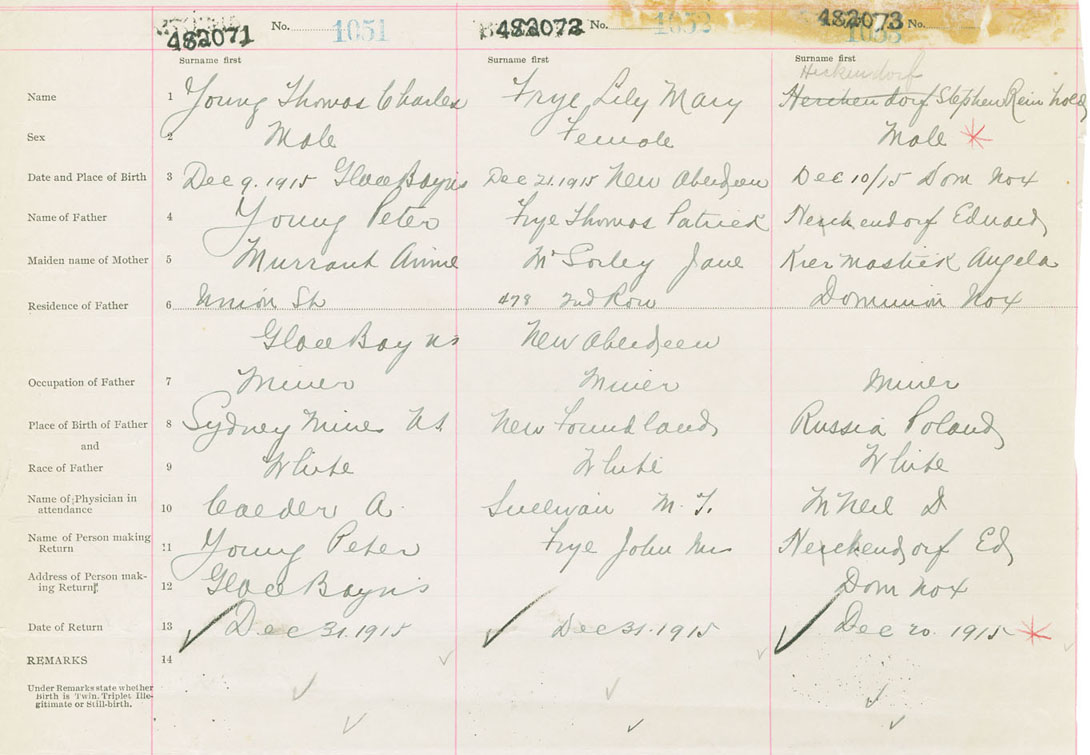 482071 No. 1051 482072 No. 1052 482073 No. 1053
Surname first Surname first Surname first
Heckendorf
Name 1 Young Thomas Charles Frye Lily Mary Herchendorf Stephen Reinhold
Sex 2 Male Female Male
Date and Place of Birth 3 Dec 9. 1915 Glace Bay NS Dec 21. 1915 New Aberdeen Dec 10/15 Dom No 4
Name of Father 4 Young Peter Frye Thomas Patrick Edward
Maiden name of Mother 5 Murrant Annie McSorley Jane Angela
Residence of Father 6 Union St 478 2nd Row Dominion No 4
Glace Bay NS New Aberdeen
Occupation of Father 7 Miner Miner Miner
Place of Birth of Father 8 Sydney Mines N.S. New Foundland Russia Poland
and
Race of Father 9 White White White
Name of Physician in
attendance 10 Calder A. Sullivan M. T. McNeil D
Name of Person making
Return 11 Young Peter Frye John Mrs Ed
Address of Person mak-
ing Return 12 Glace Bay NS Dom No 4
Date of Return 13 Dec 31. 1915 Dec 31. 1915 Dec 20. 1915
REMARKS 14
Under Remarks state whether
Birth is Twin. Triplet Ille-
gitimate or Still-birth.